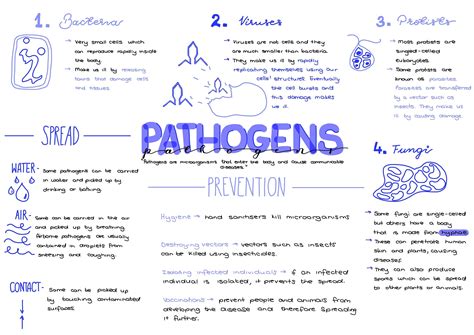 1. Bacteria
→ Very small cells which
can reproduce rapidly inside
the body.
→ Make us ill by releasing
toxins that damage cells
and tissues
2. Viruses
→ Viruses are not cells and they
are much smaller than bacteria.
→ They make us ill by rapidly
replicating themselves using our
cells' structure. Eventually
the cell bursts and
this damage makes
us ill
3. Protists
→ Most protists are
singled-celled
eukaryotes.
→ Some protists are
known as parasites.
Parasites are transferred
by a vector such as
insects. They make us
ill by causing damage.
SPREAD
WATER-
Some pathogens can be carried
in water and picked up by
drinking or bathing.
AIR-
Some can be carried in the air
and picked up by breathing.
Airborne pathogens are usually
contained in droplets from
sneezing and coughing.
CONTACT-
Some can be picked up
by touching contaminated
surfaces.
PATHOGENS
pathogens
"Pathogens are microorganisms that enter the body and cause communicable
diseases."
PREVENTION
Hygiene → hand sanitisers kill microorganisms
Destroying vectors → vectors such as insects
can be killed using insecticides.
Isolating infected individuals → if an infected
individual is isolated, it prevents the spread.
Vaccinations → prevent people and animals from
developing the disease and therefore spreading
it further.
4. Fungi
→ Some fungi are single-celled
but others have a body
that is made from hyphae.
→ These can penetrate human
skin and plants, causing
diseases
→ They can also produce
spores which can be spread
to other plants and
animals.